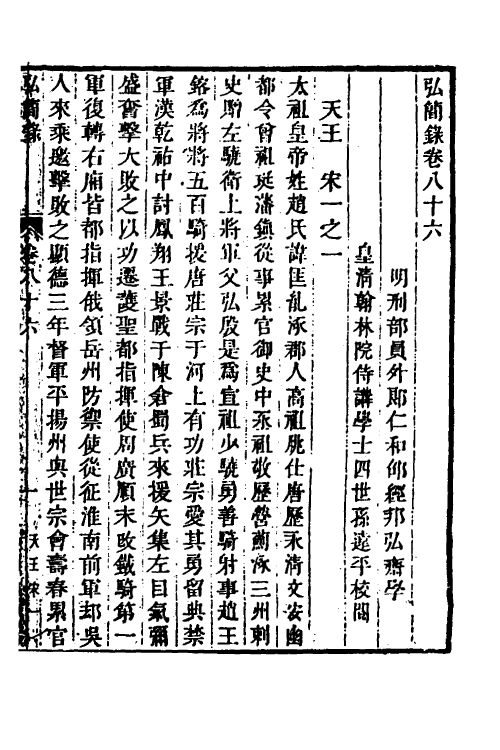 弘簡錄卷八十六
明刑部員外郎仁和邵經邦弘齋學
皇淸翰林院侍講學士四世孫遠平校閱
天王　宋一之一
太祖皇帝姓趙氏諱匡胤涿郡人高祖朓仕唐歷永淸文安幽
都令曾祖珽藩鎭從事累官御史中丞祖敬歷營薊涿三州刺
史贈左驍衛上將軍父弘殷是爲宣祖少驍勇善騎射事趙王
鎔爲將將五百騎援唐莊宗于河上有功莊宗愛其勇留典禁
軍漢乾祐中討鳳翔王景戰于陳倉蜀兵來援矢集左目氣彌
盛奮擊大敗之以功遷護聖都指揮使周廣順末改鐵騎第一
軍復轉右廂皆都指揮俄領岳州防禦使從征淮南前軍却吳
人來乘邀擊敗之顯德三年督軍平揚州與世宗會壽春累官
弘簡錄　卷八十六　一　天王宋一